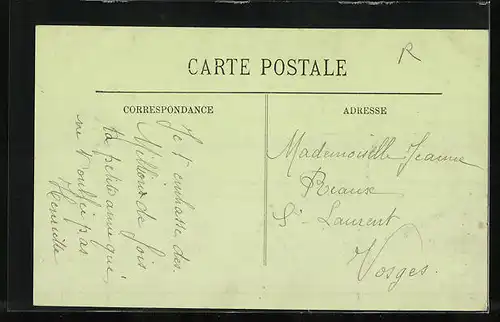 R
CARTE POSTALE
CORRESPONDANCE
Je t'embrasse des
Millions de fois
ta petite amie qui
ne t'oublie pas
Henriette
ADRESSE
Mademoiselle Jeanne
Reaux
St Laurent
Vosges.